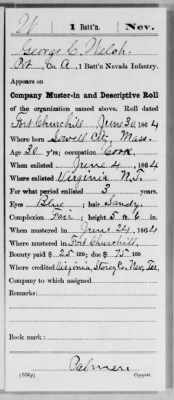 W | 1 Batt'n. | Nev.
George C. Welsh
Pvt, Co. A, 1 Batt'n Nevada Infantry.
Appears on
Company Muster-in and Descriptive Roll
of the organization named above. Roll dated
Fort Churchill, June 30, 1864
Where born Lowell City, Mass.
Age 30 y'rs; occupation Cook
When enlisted June 4, 1864
Where enlisted Virginia N.T.
For what period enlisted 3 years.
Eyes Blue; hair Sandy.
Complexion Fair; height 5 ft. 6 in.
When mustered in June 24, 1864
Where mustered in Fort Churchill,
Bounty paid $ 25 100; due $ 75 100
Where credited Virginia, Storey Co., Nev. Ter,
Company to which assigned
Remarks:
Book mark:
Palmer
(336g) Copyist.